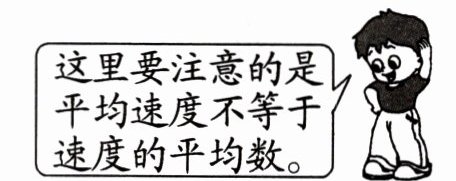 这里要注意的是
平均速度不等于
速度的平均数。